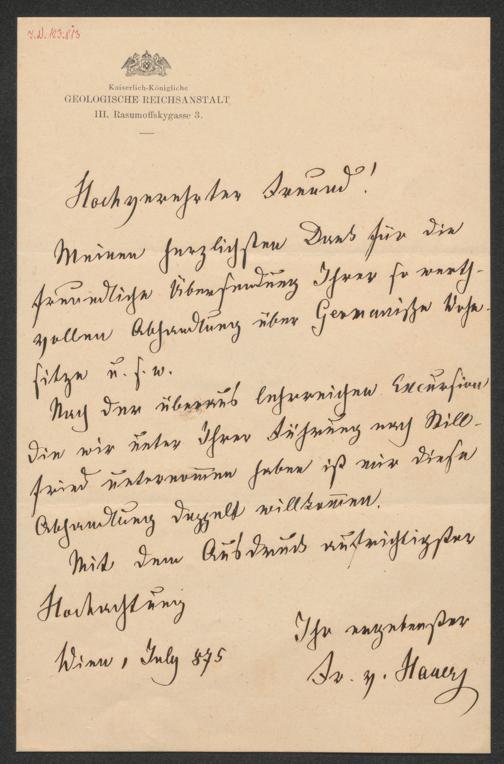 I.N. 103.813
Kaiserlich-Königliche
GEOLOGISCHE REICHSANSTALT
III, Rasumoffskygasse 3.
Hochverehrter Freund!
Meinen herzlichsten Dank für die
freundliche Übersendung Ihrer so werth-
vollen Abhandlung über Germanische Wohn-
sitze u. s. w.
Nach der überaus lehrreichen Excursion
die wir unter Ihrer Führung nach Still-
fried unternom̅en haben ist mir diese
Abhandlung doppelt willkom̅en.
Mit dem Ausdruck aufrichtigster
Hochachtung
Ihr ergebenster
Wien 1 July 875
Fr. v. Hauer